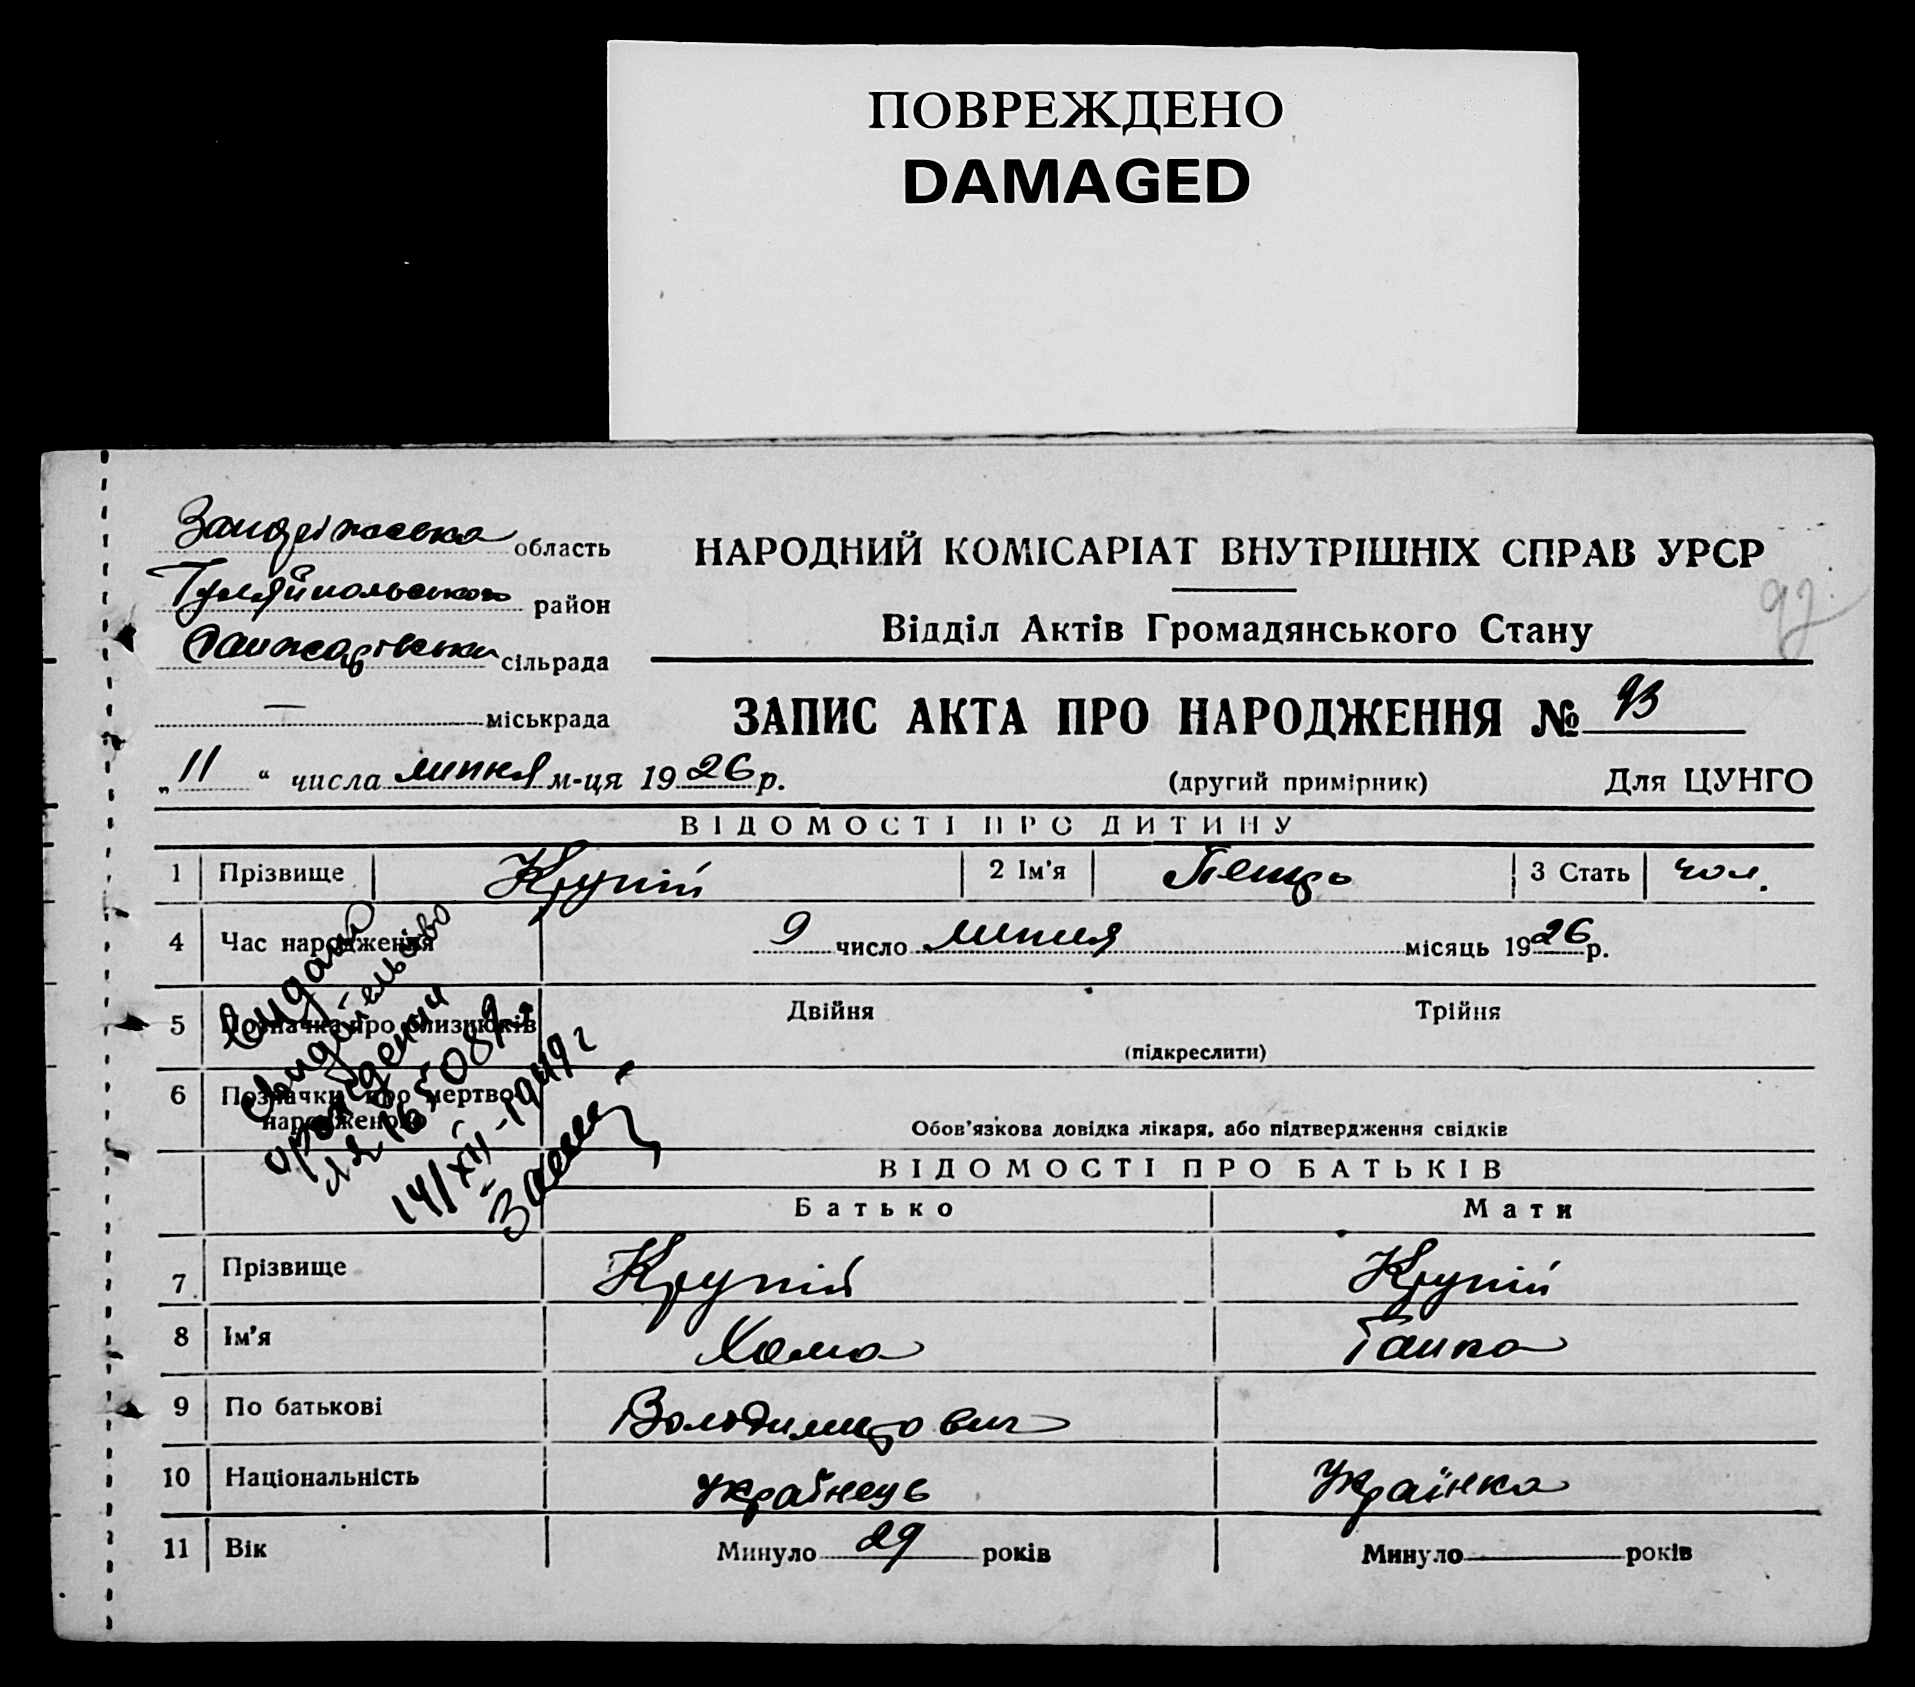 ПОВРЕЖДЕНО
DAMAGED
область
Гуляйпольського район
сільрада
— міськрада
НАРОДНИЙ КОМІСАРІАТ ВНУТРІШНІХ СПРАВ УРСР
Відділ Актів Громадянського Стану
ЗАПИС АКТА ПРО НАРОДЖЕННЯ № 93
„ 11 “ числа липня м-ця 1926 р.
(другий примірник) Для ЦУНГО
ВІДОМОСТІ ПРО ДИТИНУ
1 Прізвище Крупій 2 Ім'я Петрь 3 Стать чол.
4 Час народження 9 число липня місяць 1926 р.
5 Позначка про близнюків Двійня Трійня
(підкреслити)
6 Позначки про мертво-
народженого
Обов'язкова довідка лікаря, або підтвердження свідків
14/XII-1949 г
ВІДОМОСТІ ПРО БАТЬКІВ
Батько Мати
7 Прізвище Крупій Крупій
8 Ім'я Хома Ганна
9 По батькові Володимирович
10 Національність Українець Українка
11 Вік Минуло 29 років Минуло років